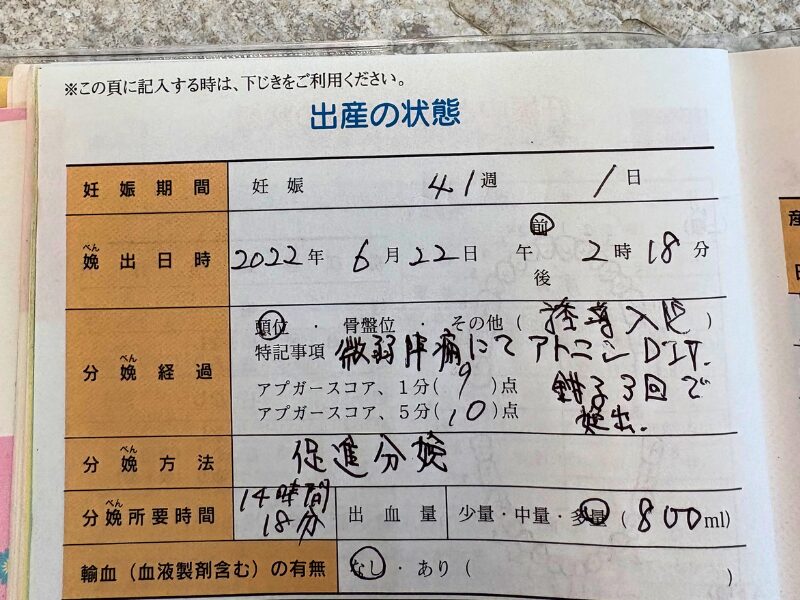 ※この頁に記入する時は、下じきをご利用ください。
出産の状態
妊娠期間 妊娠 41週 1日
娩出日時 2022年 6月22日 午 前 後 2時18分
分娩経過 頭位・骨盤位・その他(誘導入院)
特記事項 微弱陣痛にてアトニンDIV.
アプガースコア、1分(9)点 鉗子3回で
アプガースコア、5分(10)点 娩出.
分娩方法 促進分娩
分娩所要時間 14時間18分 出血量 少量・中量・多量(800ml)
輸血(血液製剤含む)の有無 なし・あり( )
産